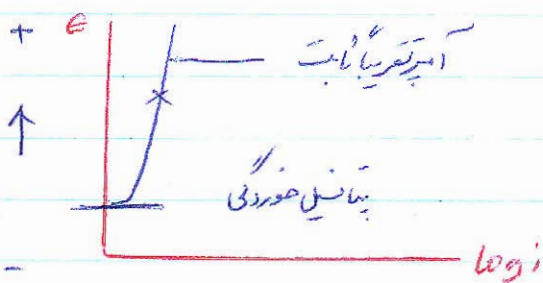 + e
آمپر تقریباً ثابت
پتانسیل خوردگی
-
log i